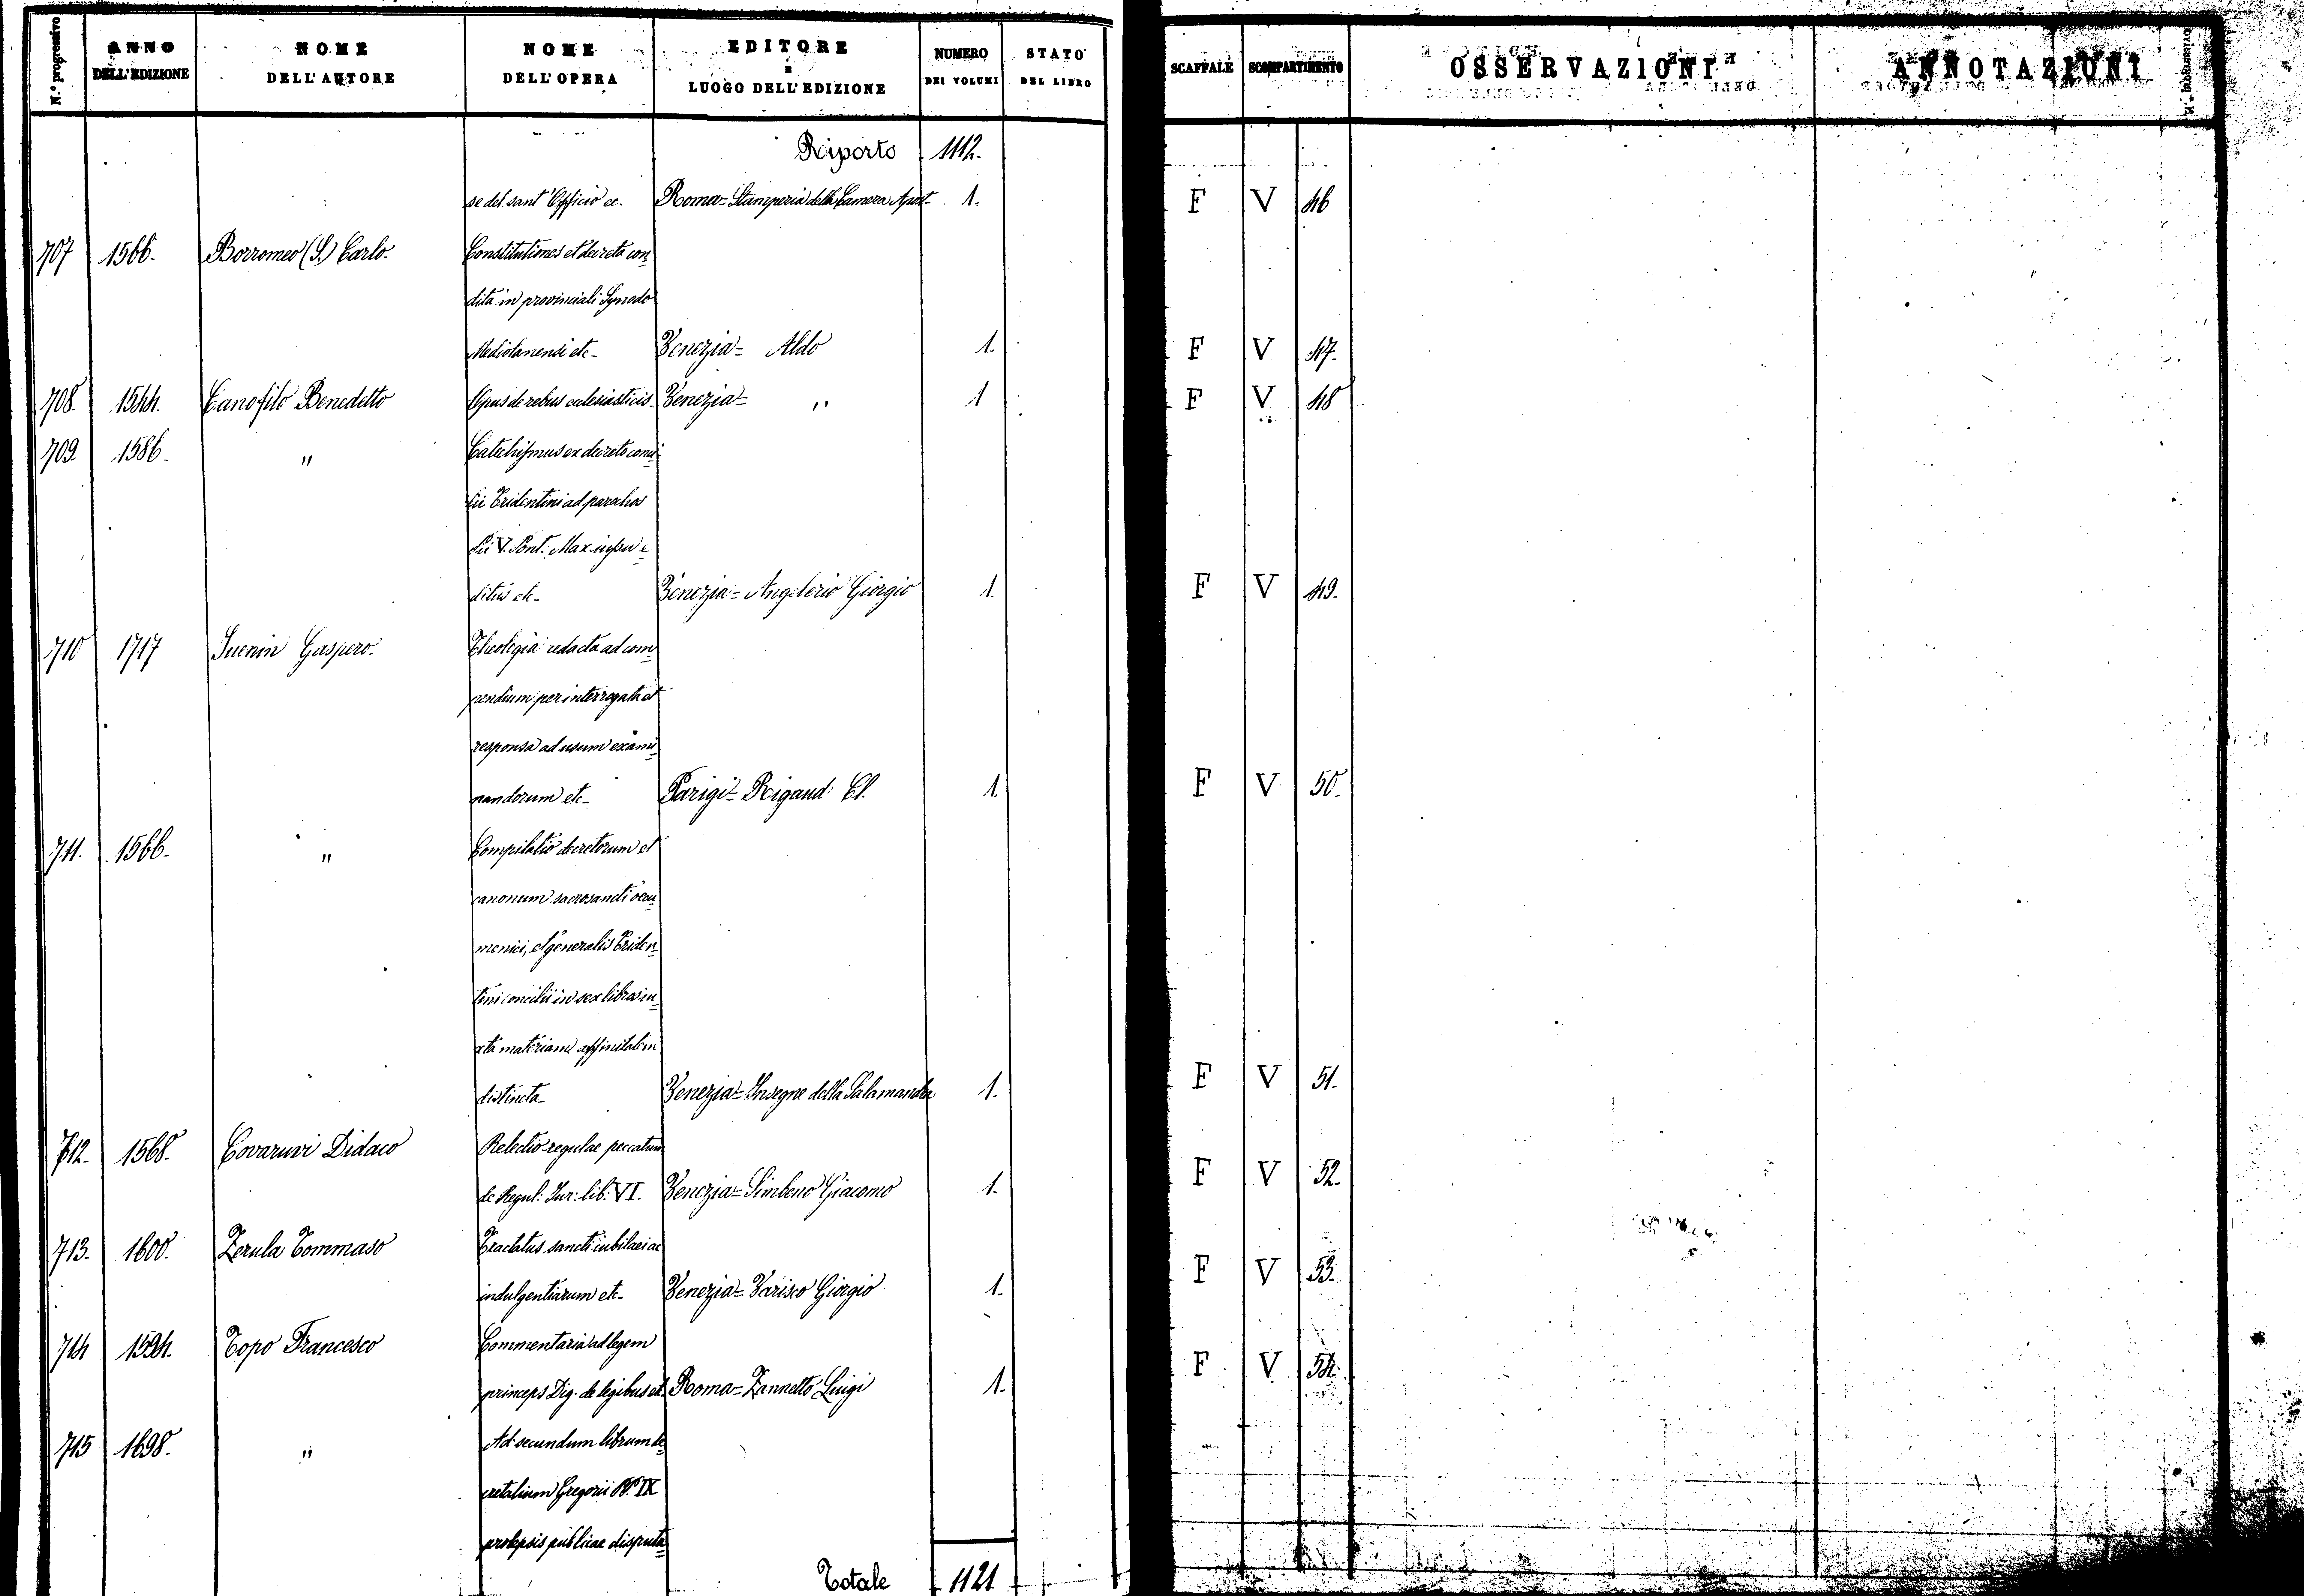 N.° progressivo
ANNO DELL'EDIZIONE
NOME DELL'AUTORE
NOME DELL'OPERA
EDITORE E LUOGO DELL'EDIZIONE
NUMERO DEI VOLUMI
STATO DEL LIBRO
SCAFFALE
SCOMPARTIMENTO
OSSERVAZIONI
ANNOTAZIONI
Riporto 1112.
se del sant'Officio ec. Roma = Stamperia della Camera Apost- 1. F V 46
707 1566. Borromeo (S.) Carlo. Constitutiones et decreta con=
dita in provinciali Synodo
Mediolanensi etc- Venezia = Aldo 1. F V 47.
708. 1544. Canofilo Benedetto Opus de rebus ecclesiasticis. Venezia = " 1 F V 48
709. 1586. " Catechismus ex decreto conci=
lii Tridentini ad parochos
Pii V. Pont. Max. iussu e=
ditus etc- Venezia = Angelerio Giorgio 1. F V 49.
710 1717 Juenin Gaspero. Theologia redacta ad com=
pendium per interrogata et
responsa ad usum exami=
nandorum etc- Parigi = Rigaud: Cl. 1. F V 50.
711. 1566. " Compilatio decretorum et
canonum sacrosancti oecu=
menici, et generalis Triden=
tini concilii in sex libros iu=
xta materiam affinitatem
distincta- Venezia = Insegne della Salamandra 1. F V 51.
712. 1568. Covaruvi Didaco Relectio regulae peccatum
de Regul: Jur: lib: VI. Venezia = Simbeno Giacomo 1. F V 52.
713. 1600. Zerula Tommaso Tractatus sancti iubilaei ac
indulgentiarum etc- Venezia = Varisco Giorgio 1. F V 53.
714 1594. Topo Francesco Commentaria ad legem
princeps Dig. de legibus et. Roma = Zannetto Luigi 1. F V 54.
715 1698. " Ad secundum librum de=
cretalium Gregorii PP. IX
prolepsis publicae disputa=
Totale 1121